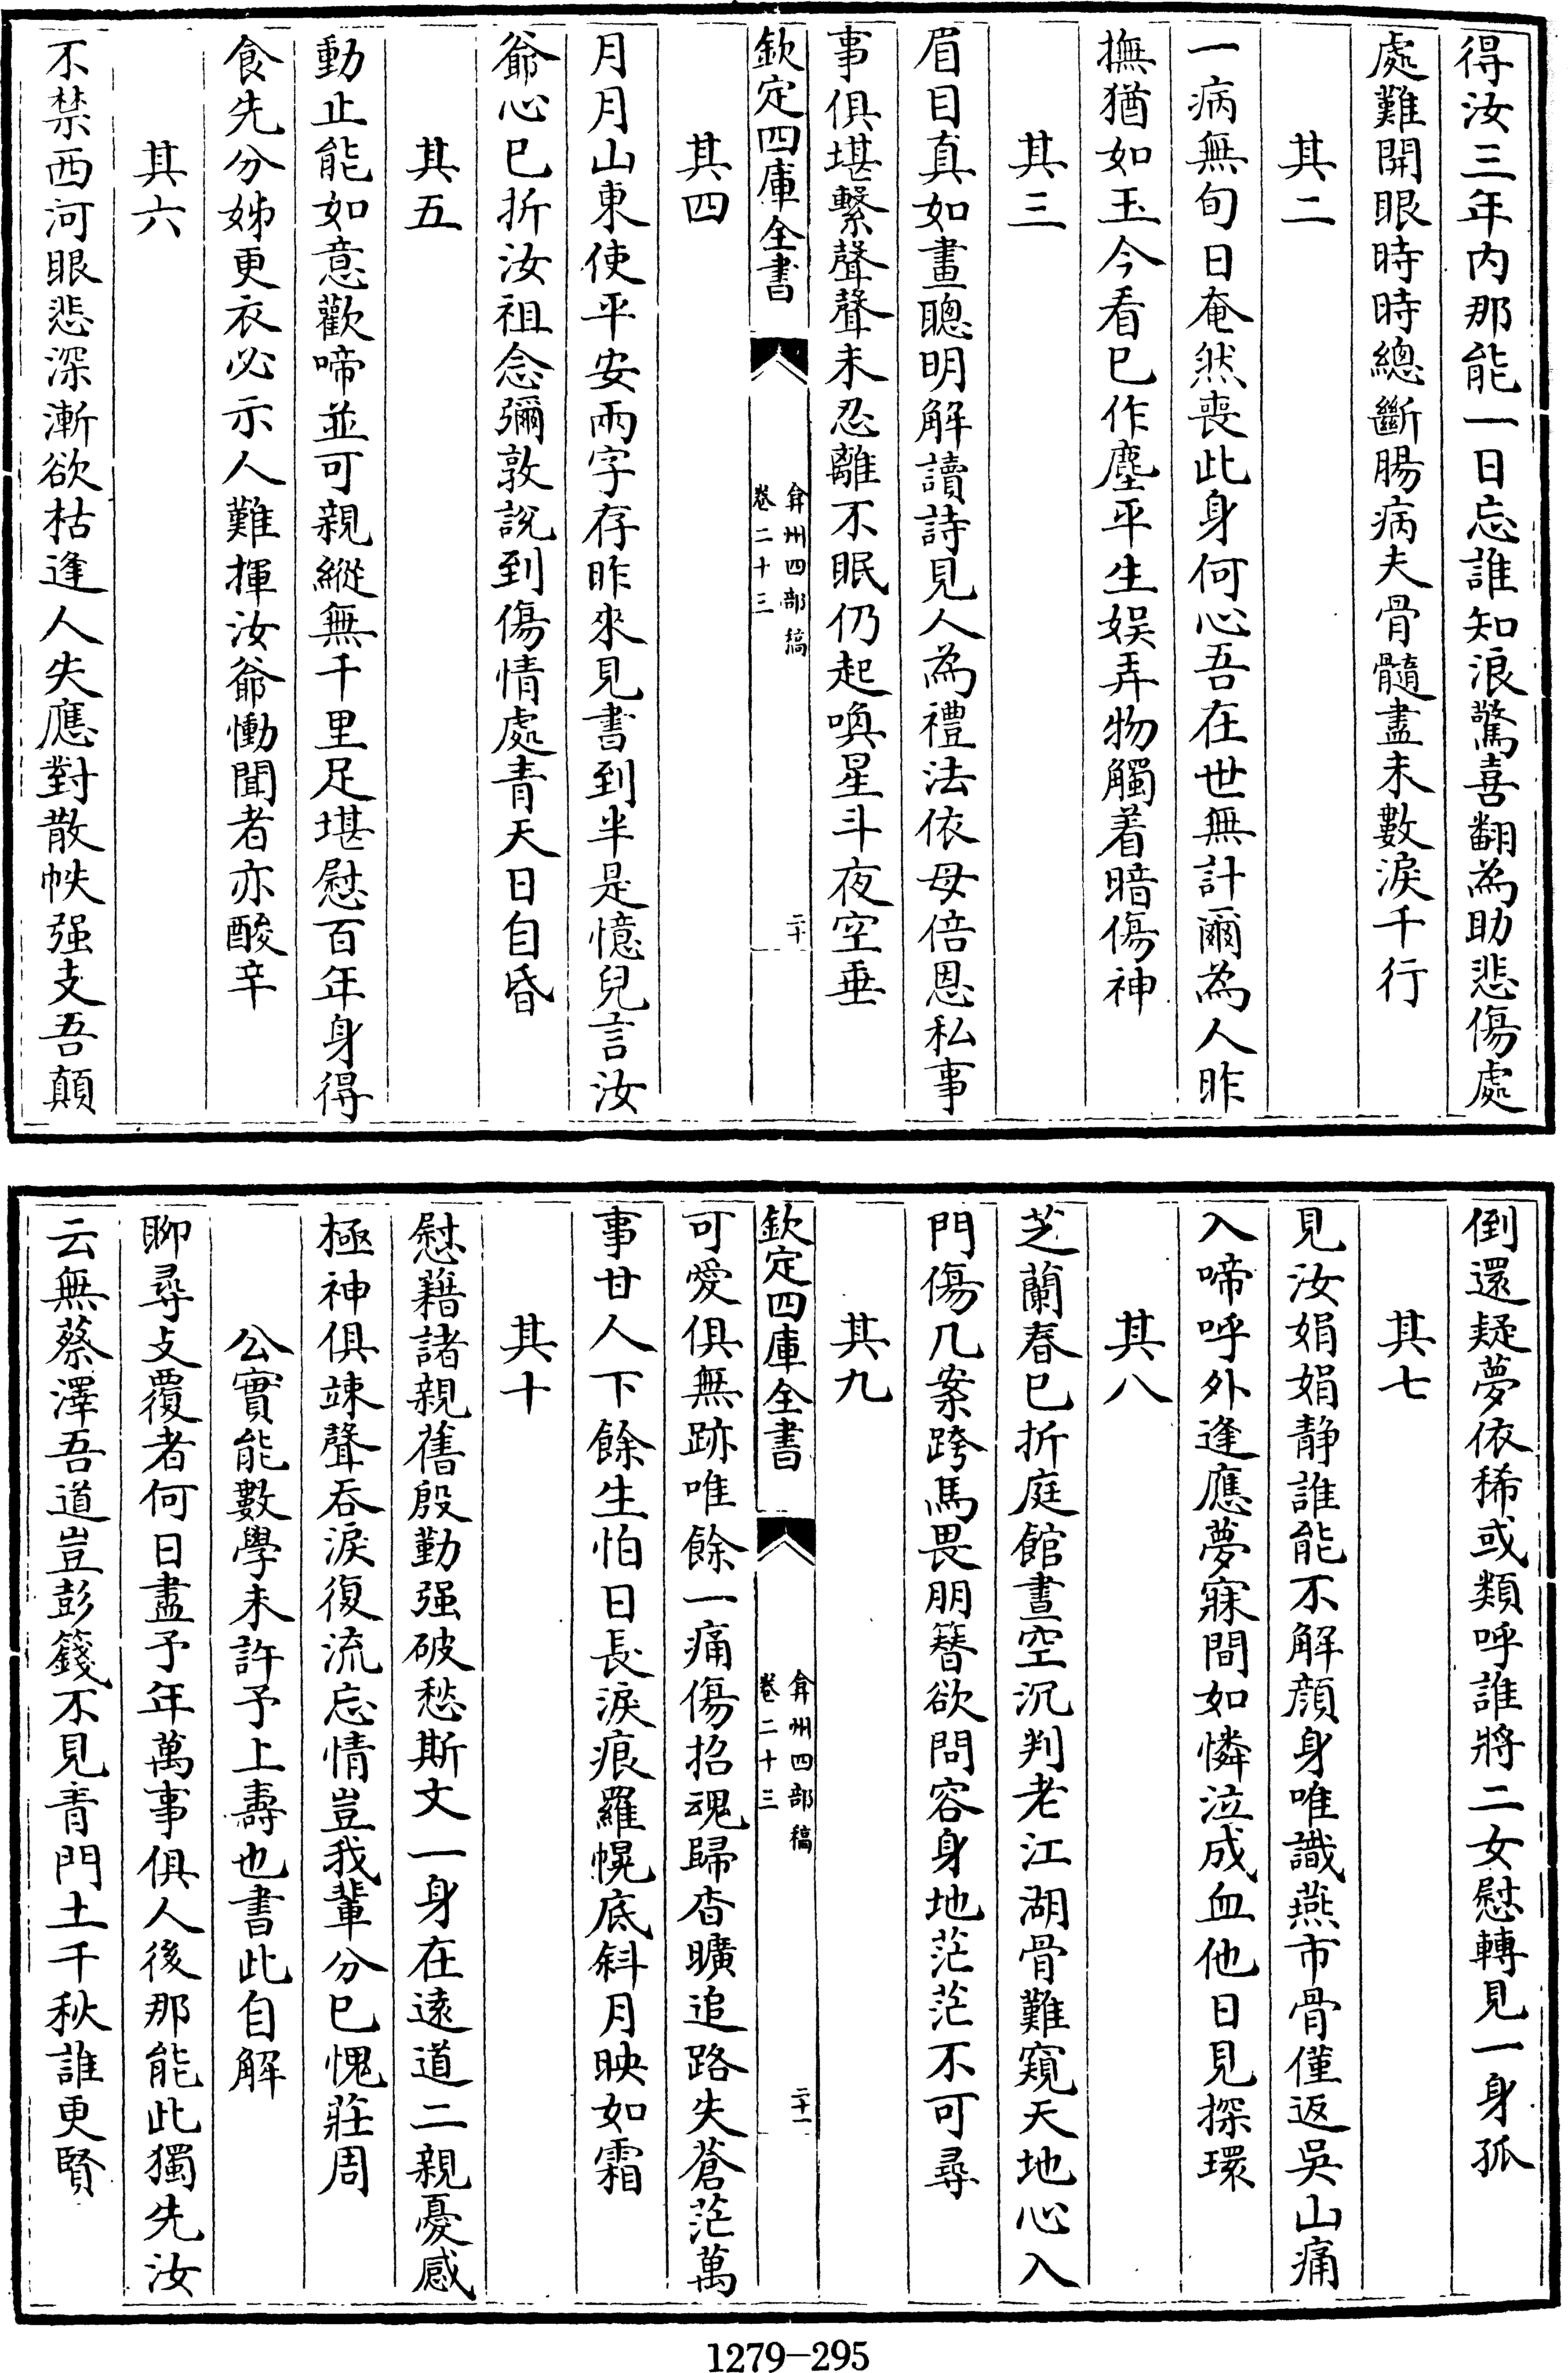 得汝三年内那能一日忘誰知浪驚喜翻為助悲傷處
處難開眼時時總斷腸病夫骨髓盡未數淚千行
其二
一病無旬日奄然喪此身何心吾在世無計爾為人昨
撫猶如玉今看已作塵平生娱弄物觸着暗傷神
其三
眉目真如畫聰明解讀詩見人為禮法依母倍恩私事
事俱堪繫聲聲未忍離不眠仍起喚星斗夜空垂
欽定四庫全書
弇州四部稿
卷二十三
二十
其四
月月山東使平安兩字存昨來見書到半是憶兒言汝
爺心已折汝祖念彌敦說到傷情處青天日自昏
其五
動止能如意歡啼並可親縱無千里足堪慰百年身得
食先分姊更衣必示人難揮汝爺慟聞者亦酸辛
其六
不禁西河眼悲深漸欲枯逢人失應對散帙强支吾顛
倒還疑夢依稀或類呼誰將二女慰轉見一身孤
其七
見汝娟娟静誰能不解顔身唯識燕市骨僅返吳山痛
入啼呼外逢應夢寐間如憐泣成血他日見探環
其八
芝蘭春已折庭館晝空沉判老江湖骨難窺天地心入
門傷几案跨馬畏朋簪欲問容身地茫茫不可尋
其九
欽定四庫全書
弇州四部稿
卷二十三
二十一
可愛俱無跡唯餘一痛傷招魂歸杳曠追路失蒼茫萬
事甘人下餘生怕日長淚痕羅幌底斜月映如霜
其十
慰藉諸親舊殷勤强破愁斯文一身在逺道二親憂感
極神俱竦聲吞淚復流忘情豈我輩分已愧莊周
公實能數學未許予上壽也書此自解
聊尋攴覆者何日盡予年萬事俱人後那能此獨先汝
云無蔡澤吾道豈彭籛不見青門土千秋誰更賢
1279-295